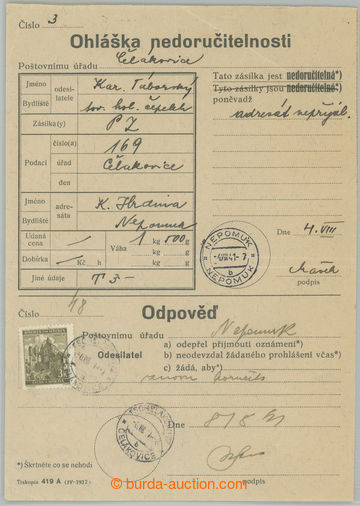 Číslo 3
Ohláška nedoručitelnosti
Poštovnímu úřadu Čelákovice
Jméno
Bydliště
odesi-
latele
Kar. Táborský
tov. hol. čepelek
Zásilka(y) PZ
Podací
číslo(a) 169
úřad Čelákovice
den
Jméno
Bydliště
adre-
sáta
K. Hrdina
Nepomuk
Udaná
cena
Váha 1 kg 500 g
Dobírka Kč h kg g
Jiné údaje T 3-
Tato zásilka jest nedoručitelna*)
Tyto zásilky jsou nedoručitelné*)
poněvadž
adresát nepřijal.
NEPOMUK
-4.VIII.41-7
b
NEPOMUK
Dne 4. VIII
podpis
Číslo 48
Odpověď
Poštovnímu úřadu Nepomuk
Odesilatel
a) odepřel přijmouti oznámení*)
b) neodevzdal žádaného prohlášení včas*)
c) žádá, aby*)
znovu
ČELÁKOVICE
b
Dne 8/8 41
podpis
*) Škrtněte co se nehodí
Tiskopis 419 A (IV-1937)
© burda-auction.com